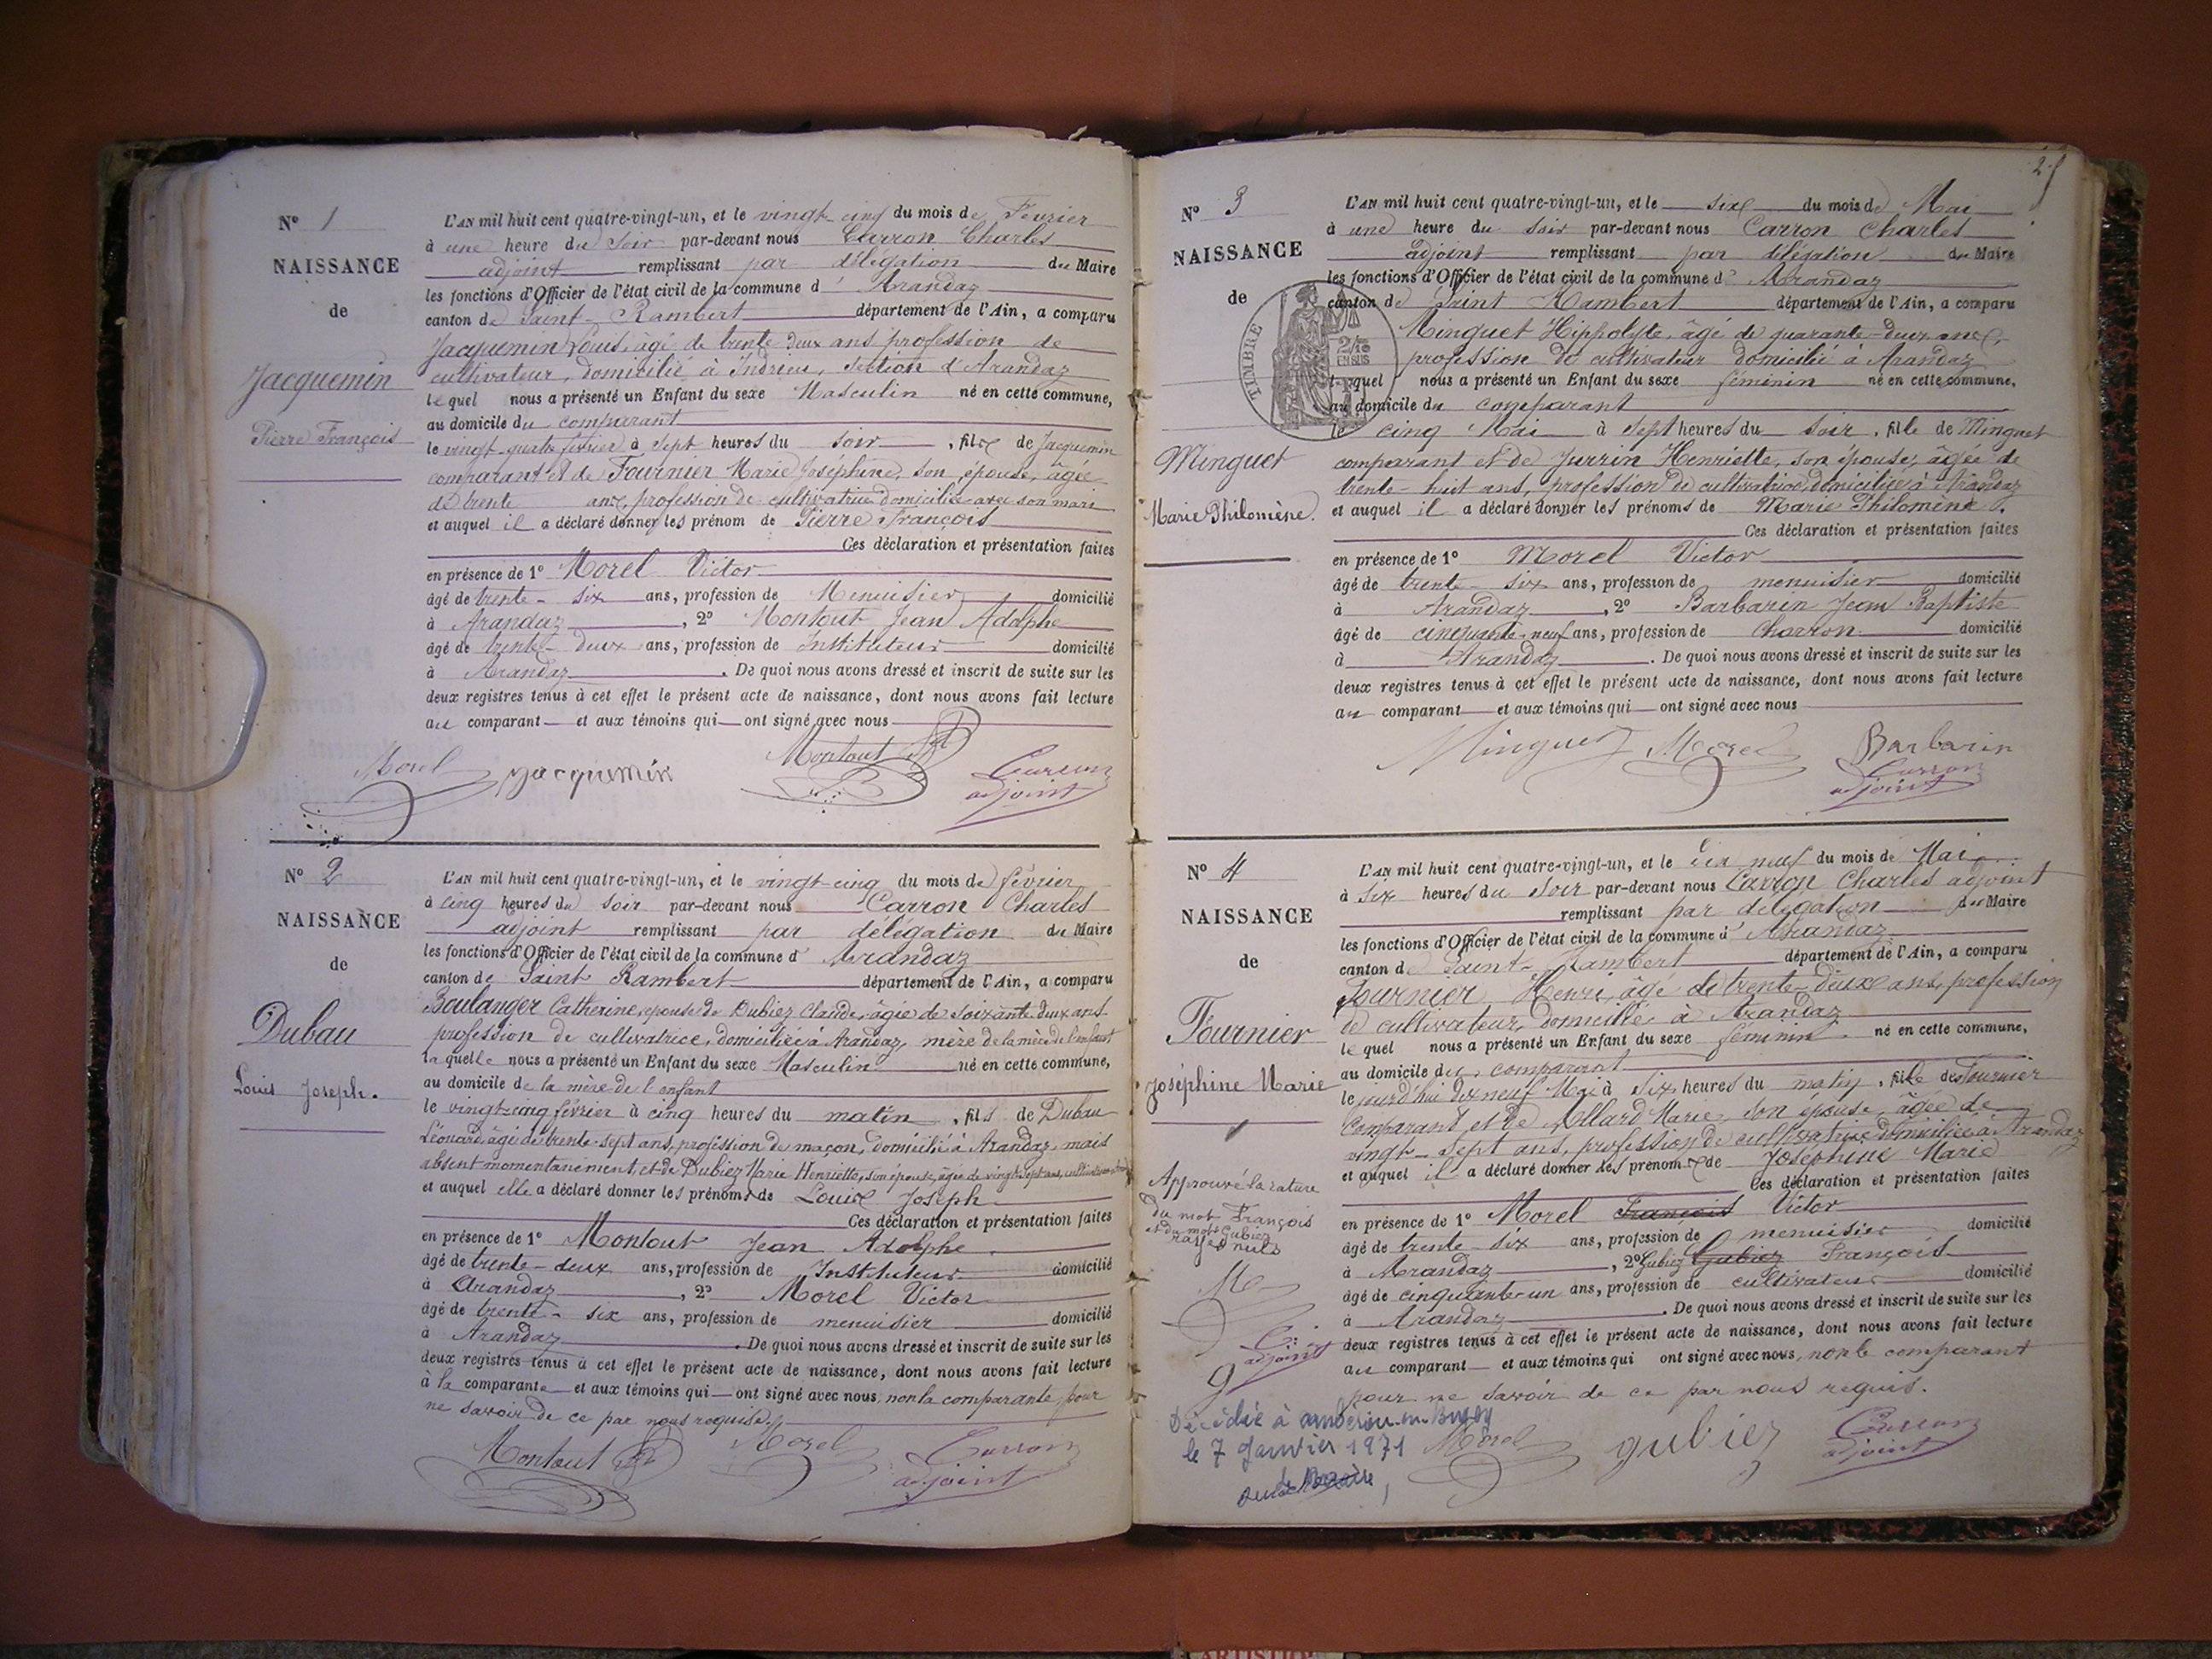 Nº 1
NAISSANCE
de
Jacquemin
Pierre François
L'AN mil huit cent quatre-vingt-un, et le vingt-cinq du mois de Fevrier
à une heure du soir par-devant nous Carron Charles
adjoint remplissant par délégation du Maire
les fonctions d'Officier de l'état civil de la commune d' Arandaz
canton de Saint-Rambert département de l'Ain, a comparu
Jacquemin Louis, âgé de trente deux ans profession de
cultivateur, domicilié à Indrieu, section d'Arandaz
lequel nous a présenté un Enfant du sexe Masculin né en cette commune,
au domicile du comparant
le vingt-quatre février à sept heures du soir, fils de Jacquemin
comparant et de Fournier Marie Joséphine, son épouse, âgée
de trente ans, profession de cultivatrice domiciliée avec son mari
et auquel il a déclaré donner les prénom de Pierre François
Ces déclaration et présentation faites
en présence de 1º Morel Victor
âgé de trente-six ans, profession de Menuisier domicilié
à Arandaz, 2º Montout Jean Adolphe
âgé de trente-deux ans, profession de Instituteur domicilié
à Arandaz. De quoi nous avons dressé et inscrit de suite sur les
deux registres tenus à cet effet le présent acte de naissance, dont nous avons fait lecture
au comparant et aux témoins qui ont signé avec nous
Morel Jacquemin Montout Carron
adjoint
Nº 2
NAISSANCE
de
Dubau
Louis Joseph.
L'AN mil huit cent quatre-vingt-un, et le vingt-cinq du mois de février
à cinq heures du soir par-devant nous Carron Charles
adjoint remplissant par délégation du Maire
les fonctions d'Officier de l'état civil de la commune d' Arandaz
canton de Saint Rambert département de l'Ain, a comparu
Boulanger Catherine épouse de Dubiez Claude, âgée de soixante deux ans
profession de cultivatrice, domiciliée à Arandaz, mère de la mère de l'enfant
laquelle nous a présenté un Enfant du sexe Masculin né en cette commune,
au domicile de la mère de l'enfant
le vingt-cinq février à cinq heures du matin, fils de Dubau
Léonard, âgé de trente-sept ans, profession de maçon, domicilié à Arandaz, mais
absent momentanément, et de Dubiez Marie Henriette, son épouse, âgée de vingt-sept ans, cultivatrice
et auquel elle a déclaré donner les prénoms de Louis Joseph
Ces déclaration et présentation faites
en présence de 1º Montout Jean Adolphe
âgé de trente-deux ans, profession de Instituteur domicilié
à Arandaz, 2º Morel Victor
âgé de trente-six ans, profession de menuisier domicilié
à Arandaz. De quoi nous avons dressé et inscrit de suite sur les
deux registres tenus à cet effet le présent acte de naissance, dont nous avons fait lecture
à la comparante et aux témoins qui ont signé avec nous non la comparante pour
ne savoir de ce par nous requise.
Montout Morel Carron
adjoint
25
Nº 3
NAISSANCE
de
Minguet
Marie Philomène.
TIMBRE
2/10
EN SUS
L'AN mil huit cent quatre-vingt-un, et le six du mois de Mai
à une heure du soir par-devant nous Carron Charles
adjoint remplissant par délégation du Maire
les fonctions d'Officier de l'état civil de la commune d' Arandaz
canton de Saint Rambert département de l'Ain, a comparu
Minguet Hippolyte, âgé de quarante-deux ans,
profession de cultivateur domicilié à Arandaz
lequel nous a présenté un Enfant du sexe féminin né en cette commune,
au domicile du comparant
le cinq Mai à sept heures du soir, fille de Minguet
comparant et de Jurrin Henriette, son épouse, âgée de
trente-huit ans, profession de cultivatrice, domiciliée à Arandaz
et auquel il a déclaré donner les prénoms de Marie Philomène.
Ces déclaration et présentation faites
en présence de 1º Morel Victor
âgé de trente-six ans, profession de menuisier domicilié
à Arandaz, 2º Barbarin Jean Baptiste
âgé de cinquante-neuf ans, profession de charron domicilié
à Arandaz. De quoi nous avons dressé et inscrit de suite sur les
deux registres tenus à cet effet le présent acte de naissance, dont nous avons fait lecture
au comparant et aux témoins qui ont signé avec nous
Minguet Morel Barbarin
Carron
adjoint
Nº 4
NAISSANCE
de
Fournier
Joséphine Marie
Approuvé la rature
du mot François
et du mot Gubiez
rayés nuls
Mo
C
adjoint
g
L'AN mil huit cent quatre-vingt-un, et le dix neuf du mois de Mai
à six heures du soir par-devant nous Carron Charles adjoint
remplissant par délégation du Maire
les fonctions d'Officier de l'état civil de la commune d' Arandaz
canton de Saint-Rambert département de l'Ain, a comparu
Fournier Henri, âgé de trente-deux ans, profession
de cultivateur, domicilié à Arandaz
lequel nous a présenté un Enfant du sexe féminin né en cette commune,
au domicile du comparant
le jourd'hui dix neuf Mai à six heures du matin, fille de Fournier
Comparant, et de Allard Marie, son épouse, âgée de
vingt-sept ans, profession de cultivatrice domiciliée à Arandaz
et auquel il a déclaré donner les prénoms de Joséphine Marie
Ces déclaration et présentation faites
en présence de 1º Morel François Victor
âgé de trente-six ans, profession de menuisier domicilié
à Arandaz, 2º Gubiez Gubiez François
âgé de cinquante-un ans, profession de cultivateur domicilié
à Arandaz. De quoi nous avons dressé et inscrit de suite sur les
deux registres tenus à cet effet le présent acte de naissance, dont nous avons fait lecture
au comparant et aux témoins qui ont signé avec nous, non le comparant
pour ne savoir de ce par nous requis.
Décédée à Ambérieu-en-Bugey
le 7 Janvier 1971
Morel gubiez Carron
adjoint
ARTISTIQUE